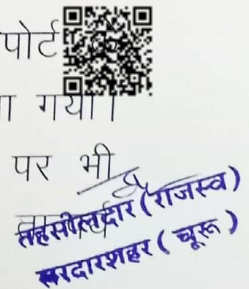 पोर्ट
गया।
पर भी
तहसीलदार (राजस्व)
सरदारशहर (चूरू)